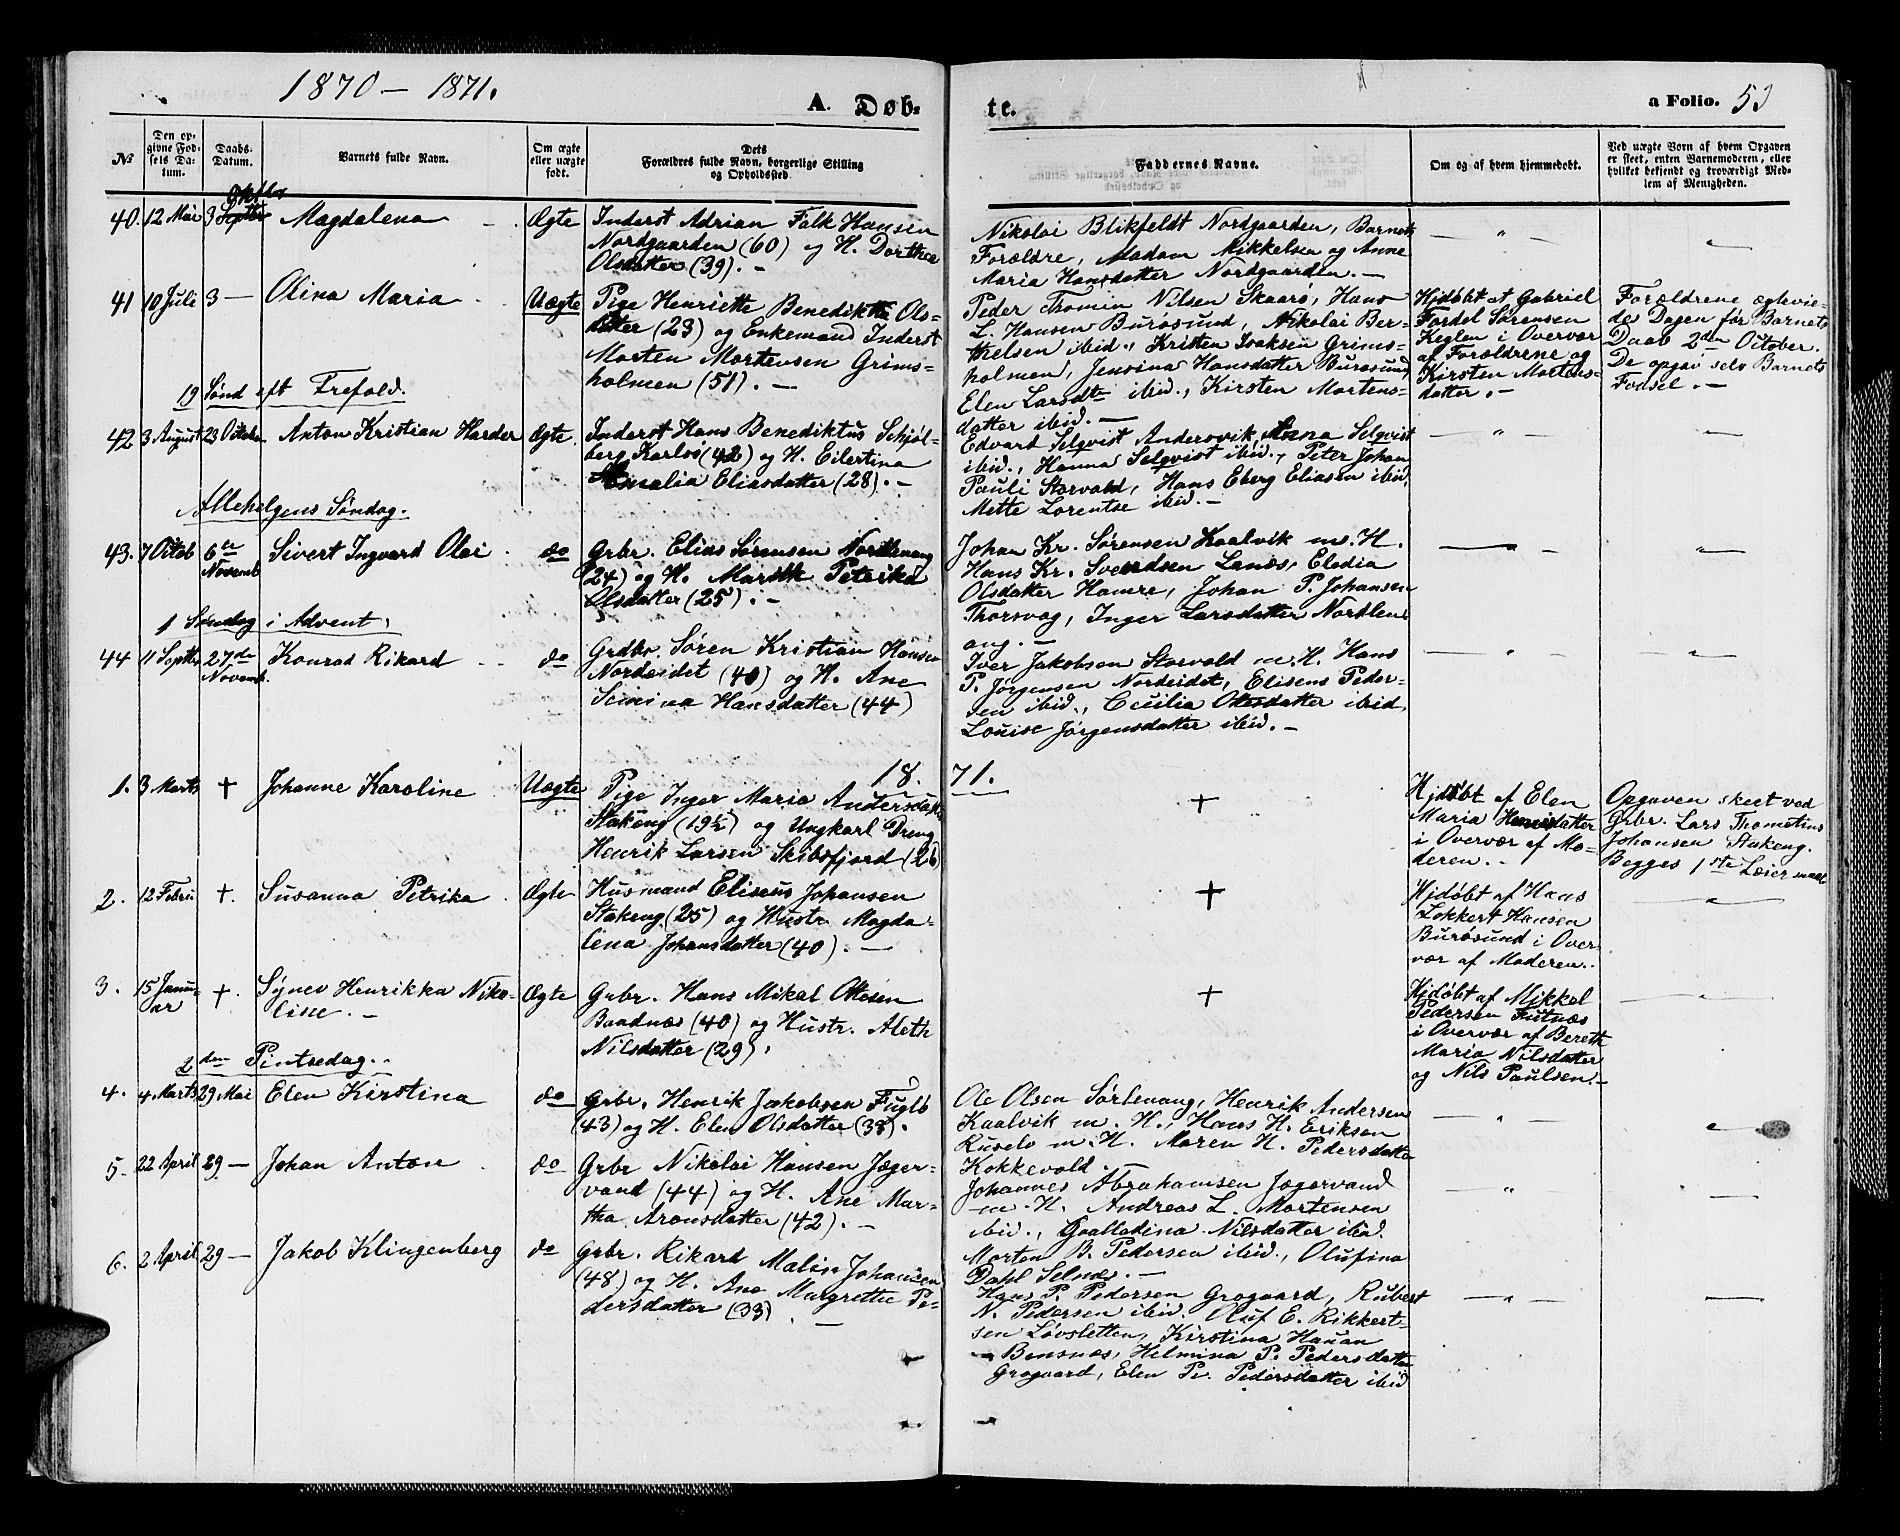 1870 – 1871.
A. Døb-
te.
a Folio. 53
No
Den op-
givne Fød-
sels Da-
tum.
Daabs-
Datum.
Barnets fulde Navn.
Om ægte
eller uægte
født.
Dets
Forældres fulde Navn, borgerlige Stilling
og Opholdssted.
Faddernes Navne.
Om og af hvem hjemmedøbt.
Ved uægte Børn af hvem Opgaven
er skeet, enten Barnemoderen, eller
hvilket bekjendt og troværdigt Med-
lem af Menigheden.
40. 12 Mai 3 Septbr Oktbr Magdalena Ægte
Inderst Adrian Falk Hansen
Nordgaarden (60) og H. Dorthea
Olsdatter (39). –
Nikolai Blikfeldt Nordgaarden, Barnets
Forældre, Madam Mikkelsen og Anne
Maria Hansdatter Nordgaarden. –
— " —
41 10 Juli 3 — Olina Maria Uægte
Pige Henriette Benedikte Ols-
datter (23) og Enkemand Inderst
Morten Mortensen Grims-
holmen (51). –
Peder Thomin Nilsen Skaarö, Hans
L. Hansen Burösund, Nikolai Ber-
thelsen ibid., Kristen Isaksen Grims-
holmen, Jensina Hansdatter Burösund,
Elen Larsdtr ibid., Kirsten Mortens-
datter ibid. –
Hjdöbt af Gabriel
Fordel Sörensen
Keglen i Overvær
af Forældrene og
Kirsten Mortens-
datter. –
Forældrene ægtevie-
de Dagen för Barnets
Daab 2den October.
De opgav selv Barnets
Födsel. –
19 Sönd eft Trefold.
42 3 August 23 Octobr Anton Kristian Harder Ægte
Inderst Hans Benediktus Schjöl-
berg Karlsö (42) og H. Eilertina
Amalia Eliasdatter (28). –
Edvard Selqvist Andersvik, Anna Selqvist
ibid., Hanna Selqvist ibid., Peter Johan
Pauli Storvold, Hans Eberg Eliasen ibid,
Mette Lorentse ibid. –
— " —
Allehelgens Söndag.
43. 7 Octob 6te Novemb Sivert Ingvard Olai do
Grbr. Elias Sörensen Nordlenang
(24) og H. Marith Petrika
Olsdatter (25). –
Johan Kr. Sörensen Kaalvik m. H.
Hans Kr. Svendsen Lanæs, Eledia
Olsdatter Hamre, Johan P. Johansen
Thorsvag, Inger Larsdatter Nordlen-
ang. –
— " —
1 Söndag i Advent,
44 11 Septbr 27de Novemb. Konrad Rikard do
Grdbr. Sören Kristian Hansen
Nordeidet (40) og H. Ane
Simina Hansdatter (44)
Iver Jakobsen Storvold m. H. Hans
P. Jörgensen Nordeidet, Elisens Peder-
sen ibid., Cecilia Ottesdatter ibid,
Louise Jörgensdatter ibid. –
— " —
18. 71.
1. 3 Marts + Johanne Karoline Uægte
Pige Inger Maria Andersdatter
Stakeng (19½) og Ungkarl Dreng
Henrik Larsen Skibsfjord (26)
+
Hjdöbt af Elen
Maria Hansdatter
i Overvær af Mo-
deren. –
Opgaven skeet ved
Grbr. Lars Thometius
Johansen Stakeng.
Begges 1ste Leiermaal
2. 12 Febru +. Susanna Petrika Ægte
Husmand Eliseus Johansen
Stakeng (25) og Hustr. Magda-
lena Johansdatter (40). –
+
Hjdöbt af Hans
Lokkert Hansen
Burösund i Over-
vær af Moderen.
3. 15 Janu-
ar +. Synev Henrikka Niko-
line. – Ægte
Grbr. Hans Mikal Ottesen
Baadnæs (40) og Hustr. Aleth
Nilsdatter (29).
+
Hjdöbt af Mikkel
Pedersen Futnæs
i Overvær af Bereth
Maria Nilsdatter
og Nils Paulsen. –
2den Pintsedag.
4. 4 Marts 29 Mai Elen Kirstina do
Grbr. Henrik Jakobsen Fuglö
(43) og H. Elen Olsdatter (38).
Ole Olsen Sörlenang, Henrik Andersen
Kaalvik m. H., Hans H. Eriksen
Ruselv m. H. Maren H. Pedersdatter
Kokkevold.
— " —
5. 22 April 29 — Johan Anton do
Grbr Nikolai Hansen Jæger-
vand (44) og H. Ane Mar-
tha Aronsdatter (42). –
Johannes Abrahamsen Jægervand
m. H. Andreas L. Mortensen
ibid., Nilsdatter ibid.
Morten B. Pedersen ibid., Olufina
Dahl Selnæs. –
— " —
6. 2 April 29 — Jakob Klingenberg do
Grbr. Rikard Malin Johansen
(48) og H. Ane Margrethe Pe-
dersdatter (33). –
Hans P. Pedersen Grogaard, Rubert
N. Pedersen ibid. Oluf E. Rikkert-
sen Lövsletten, Kirstina Hauan
Bensnæs, Helmina P. Pedersdatter
Grogaard, Elen Pr. Pedersdatter ibid
— " —